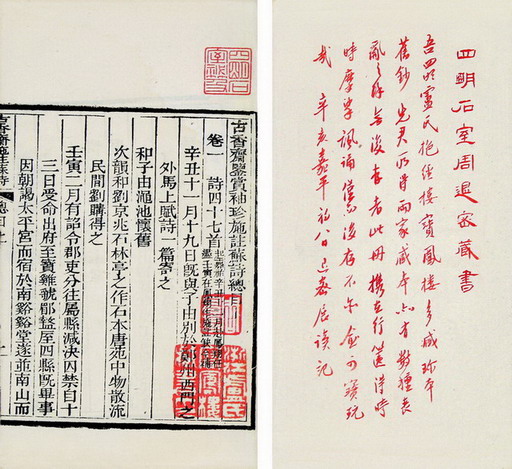 四明石室周退密藏書
吾四明盧氏抱經樓寶鳳樓多藏珍本
舊鈔先君所得兩家藏本亦才數種喪
亂之餘無復存者此冊攜在行篋得時
時摩挲諷誦
哉辛亥嘉平初八日退密居讀記
古香齋鑒賞袖珍施註蘇詩總目
卷一 詩四十七首
辛丑十一月十九日既與子由別於鄭州西門之
外馬上賦詩一篇寄之
和子由澠池懷舊
次韻和劉京兆石林亭之作石本唐苑中物散流
民間劉購得之
壬寅二月有詔令郡吏分往屬縣減決囚禁自十
三日受命出府至寶雞虢郿盩厔四縣既畢事
因朝謁太平宮而宿於南谿谿堂遂並南山而